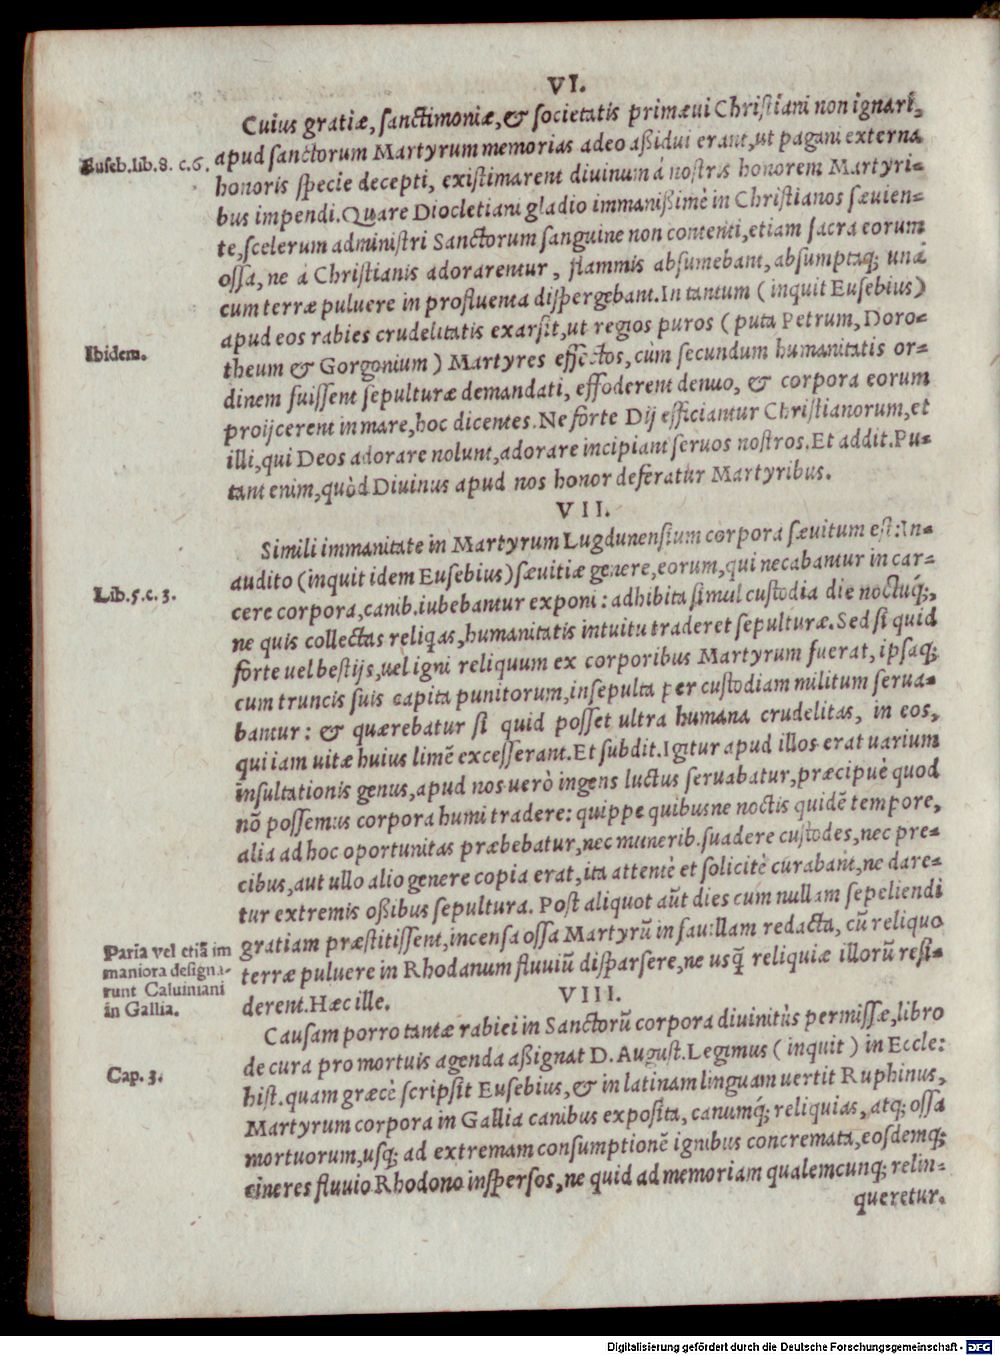 VI.
Cuius gratiæ, ſanctimoniæ, & ſocietatis primæui Chriſtiani non ignari,
apud ſanctorum Martyrum memorias adeo aßidui erant, ut pagani externa
Euſeb. lib. 8. c. 6.
honoris ſpecie decepti, exiſtimarent diuinum á noſtris honorem Martyri-
bus impendi. Quare Diocletiani gladio immanißimè in Chriſtianos ſæuien-
te, ſcelerum adminiſtri Sanctorum ſanguine non contenti, etiam ſacra eorum
oſſa, ne á Chriſtianis adorarentur, flammis abſumebant, abſumptaq; unà
cum terræ puluere in profluenta diſpergebant. In tantum (inquit Euſebius)
apud eos rabies crudelitatis exarſit, ut regios puros (puta Petrum, Doro-
Ibidem.
theum & Gorgonium) Martyres effectos, cùm ſecundum humanitatis or-
dinem fuiſſent ſepulturæ demandati, effoderent denuo, & corpora eorum
proijcerent in mare, hoc dicentes. Ne forte Dij efficiantur Chriſtianorum, et
illi, qui Deos adorare nolunt, adorare incipiant ſeruos noſtros. Et addit. Pu-
tant enim, quòd Diuinus apud nos honor deferatur Martyribus.
VII.
Simili immanitate in Martyrum Lugdunenſium corpora ſæuitum eſt: In-
audito (inquit idem Euſebius) ſæuitiæ genere, eorum, qui necabantur in car-
Lib. 5. c. 3.
cere corpora, canib. iubebantur exponi: adhibita ſimul cuſtodia die noctuq́;,
ne quis collectas reliqas, humanitatis intuitu traderet ſepulturæ. Sed ſi quid
forte uel beſtijs, uel igni reliquum ex corporibus Martyrum fuerat, ipſaq;
cum truncis ſuis capita punitorum, inſepulta per cuſtodiam militum ſerua-
bantur: & quærebatur ſi quid poſſet ultra humana crudelitas, in eos,
qui iam uitæ huius limẽ exceſſerant. Et ſubdit. Igitur apud illos erat uarium
inſultationis genus, apud nos uerò ingens luctus ſeruabatur, præcipuè quod
nõ poſſemus corpora humi tradere: quippe quibus ne noctis quidẽ tempore,
alia ad hoc oportunitas præbebatur, nec munerib. ſuadere cuſtodes, nec pre-
cibus, aut ullo alio genere copia erat, ita attentè et ſolicitè curabant, ne dare-
tur extremis oßibus ſepultura. Poſt aliquot aũt dies cum nullam ſepeliendi
gratiam præſtitiſſent, incenſa oſſa Martyrũ in fauillam redacta, cũ reliquo
Paria vel etiã im
maniora deſigna-
runt Caluiniani
in Gallia.
terræ puluere in Rhodanum fluuiũ diſparſere, ne usq̃ reliquiæ illorũ reſi-
derent. Hæc ille.
VIII.
Cauſam porro tantæ rabiei in Sanctorũ corpora diuinitùs permiſſæ, libro
de cura pro mortuis agenda aßignat D. Auguſt. Legimus (inquit) in Eccle:
Cap. 3.
hiſt. quam græcè ſcripſit Euſebius, & in latinam linguam uertit Ruphinus,
Martyrum corpora in Gallia canibus expoſita, canumq́; reliquias, atq; oſſa
mortuorum, uſq; ad extremam conſumptionẽ ignibus concremata, eoſdemq;
cineres fluuio Rhodono inſperſos, ne quid ad memoriam qualemcunq; relin-
queretur.
Digitalisierung gefördert durch die Deutsche Forschungsgemeinschaft - DFG